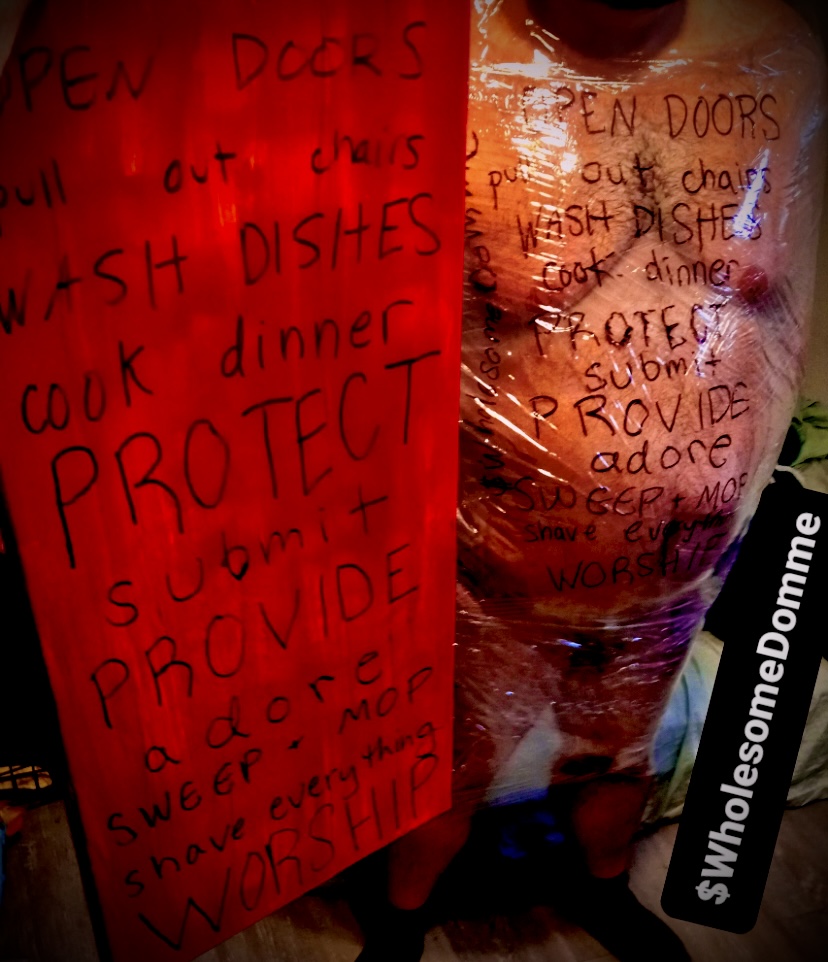 OPEN DOORS
pull out chairs
WASH DISHES
cook dinner
PROTECT
submit
PROVIDE
adore
SWEEP + MOP
shave everything
WORSHIP
OPEN DOORS
pull out chairs
WASH DISHES
cook dinner
PROTECT
submit
PROVIDE
adore
SWEEP + MOP
shave everything
WORSHIP
$WholesomeDomme
$WholesomeDomme